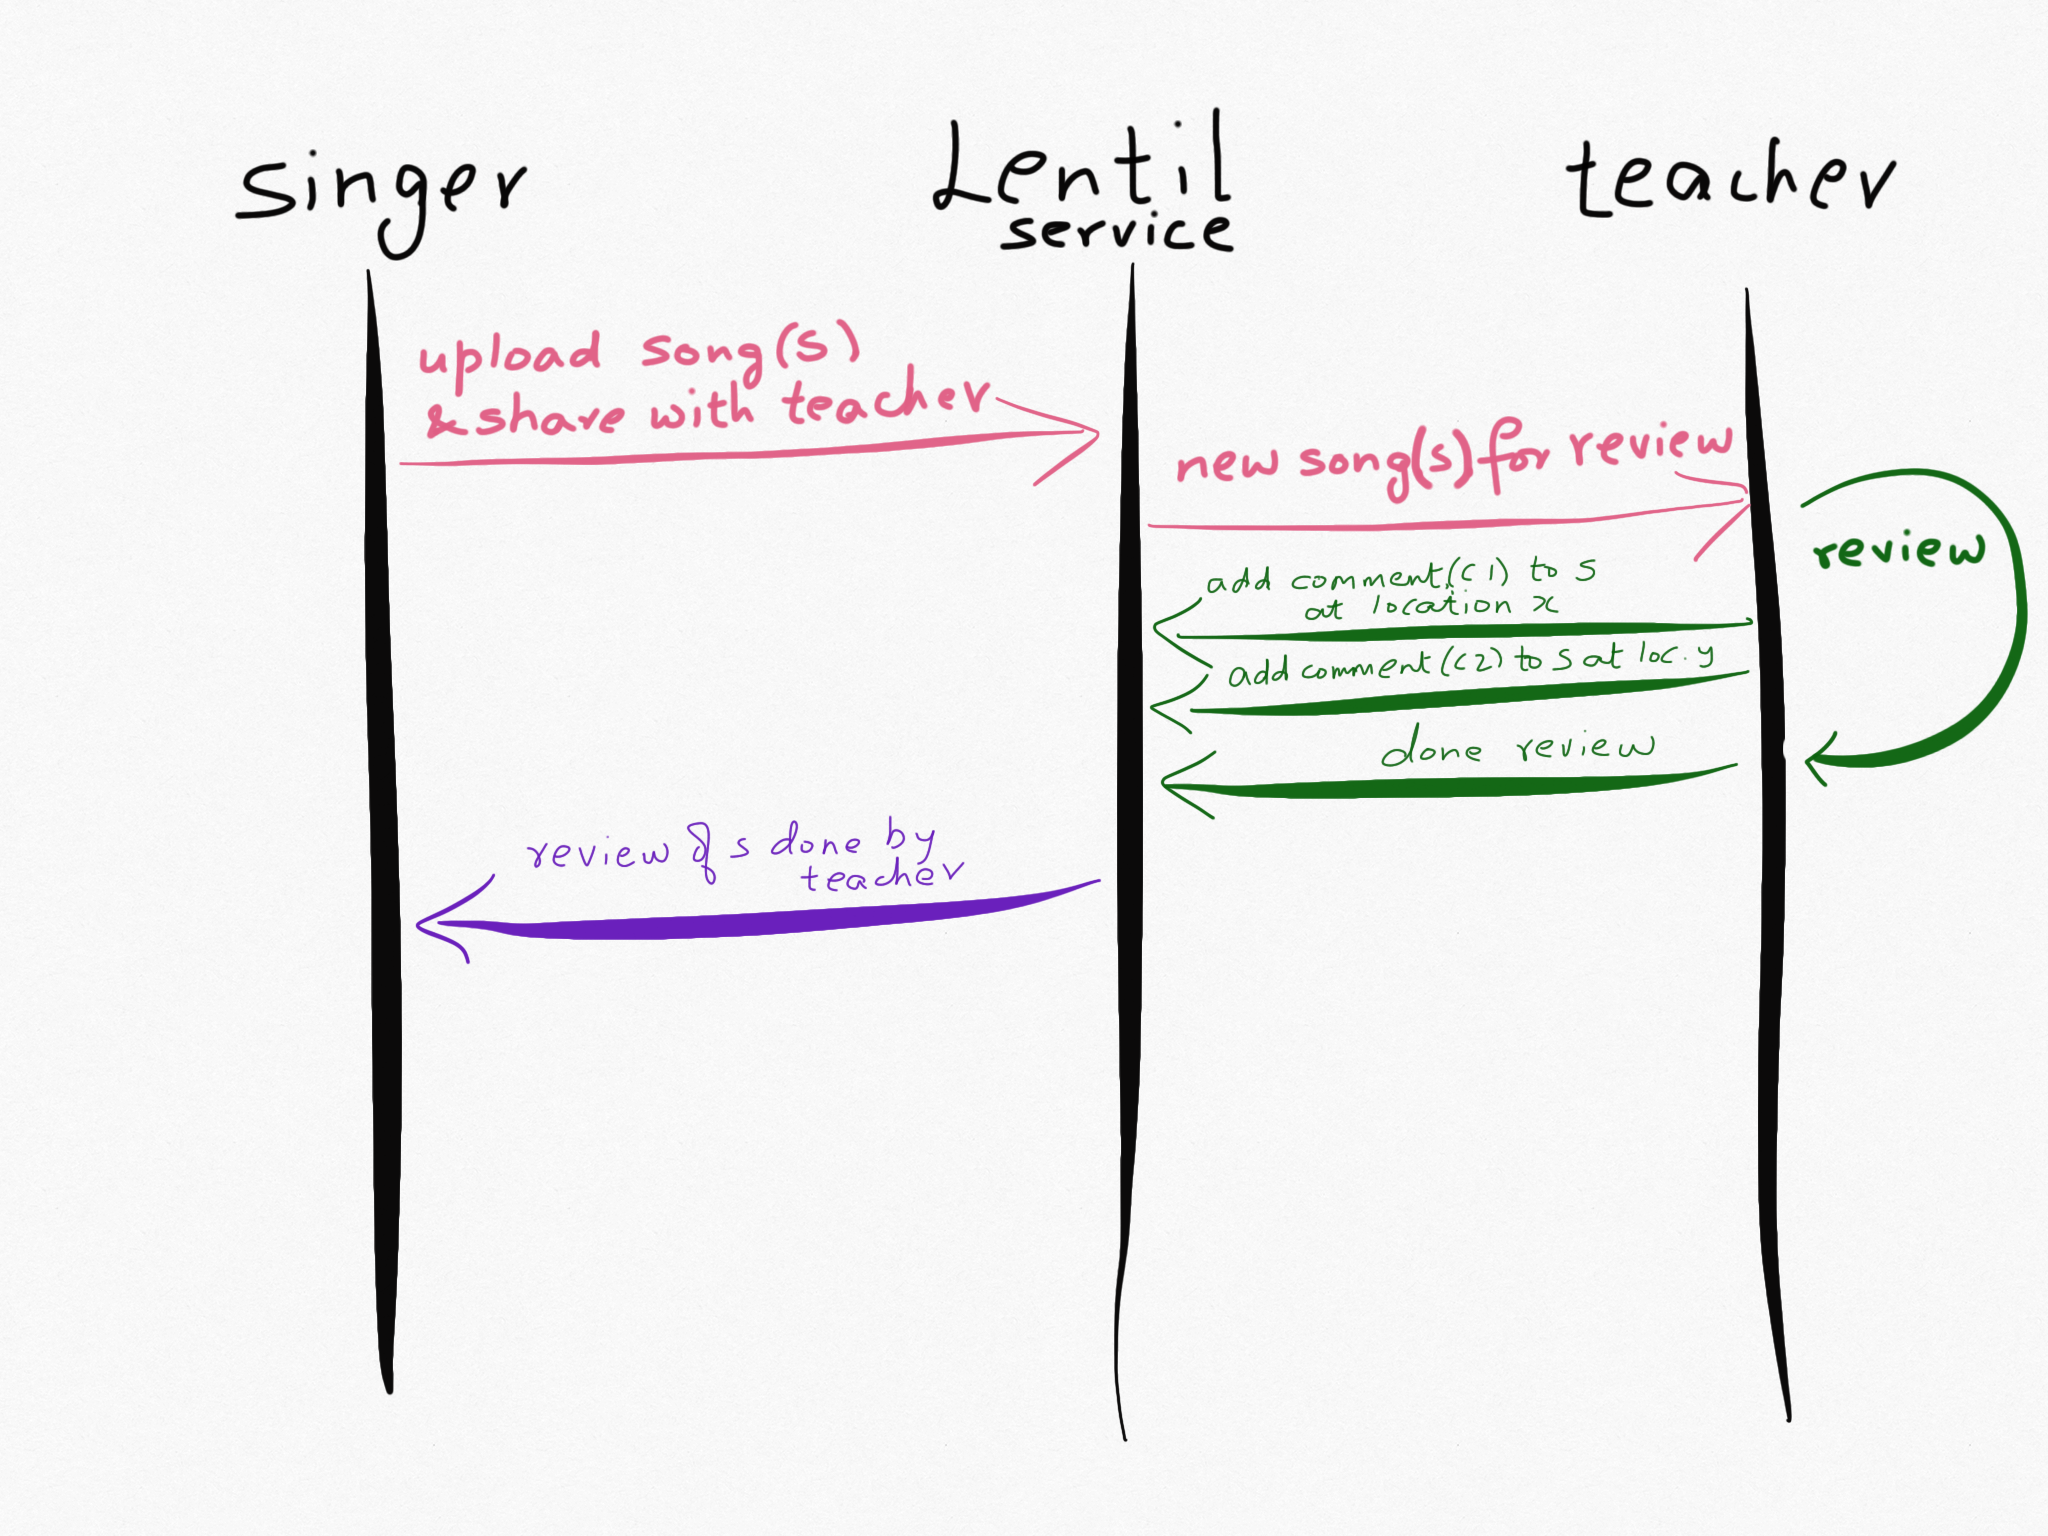 singer
Lentil
service
teacher
upload song(s)
& share with teacher
new song(s) for review
review
add comment (c1) to s
at location x
add comment (c2) to s at loc. y
done review
review of s done by
teacher